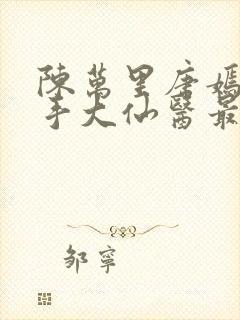 陳萬里唐嫣
手大仙醫最
鄒寧